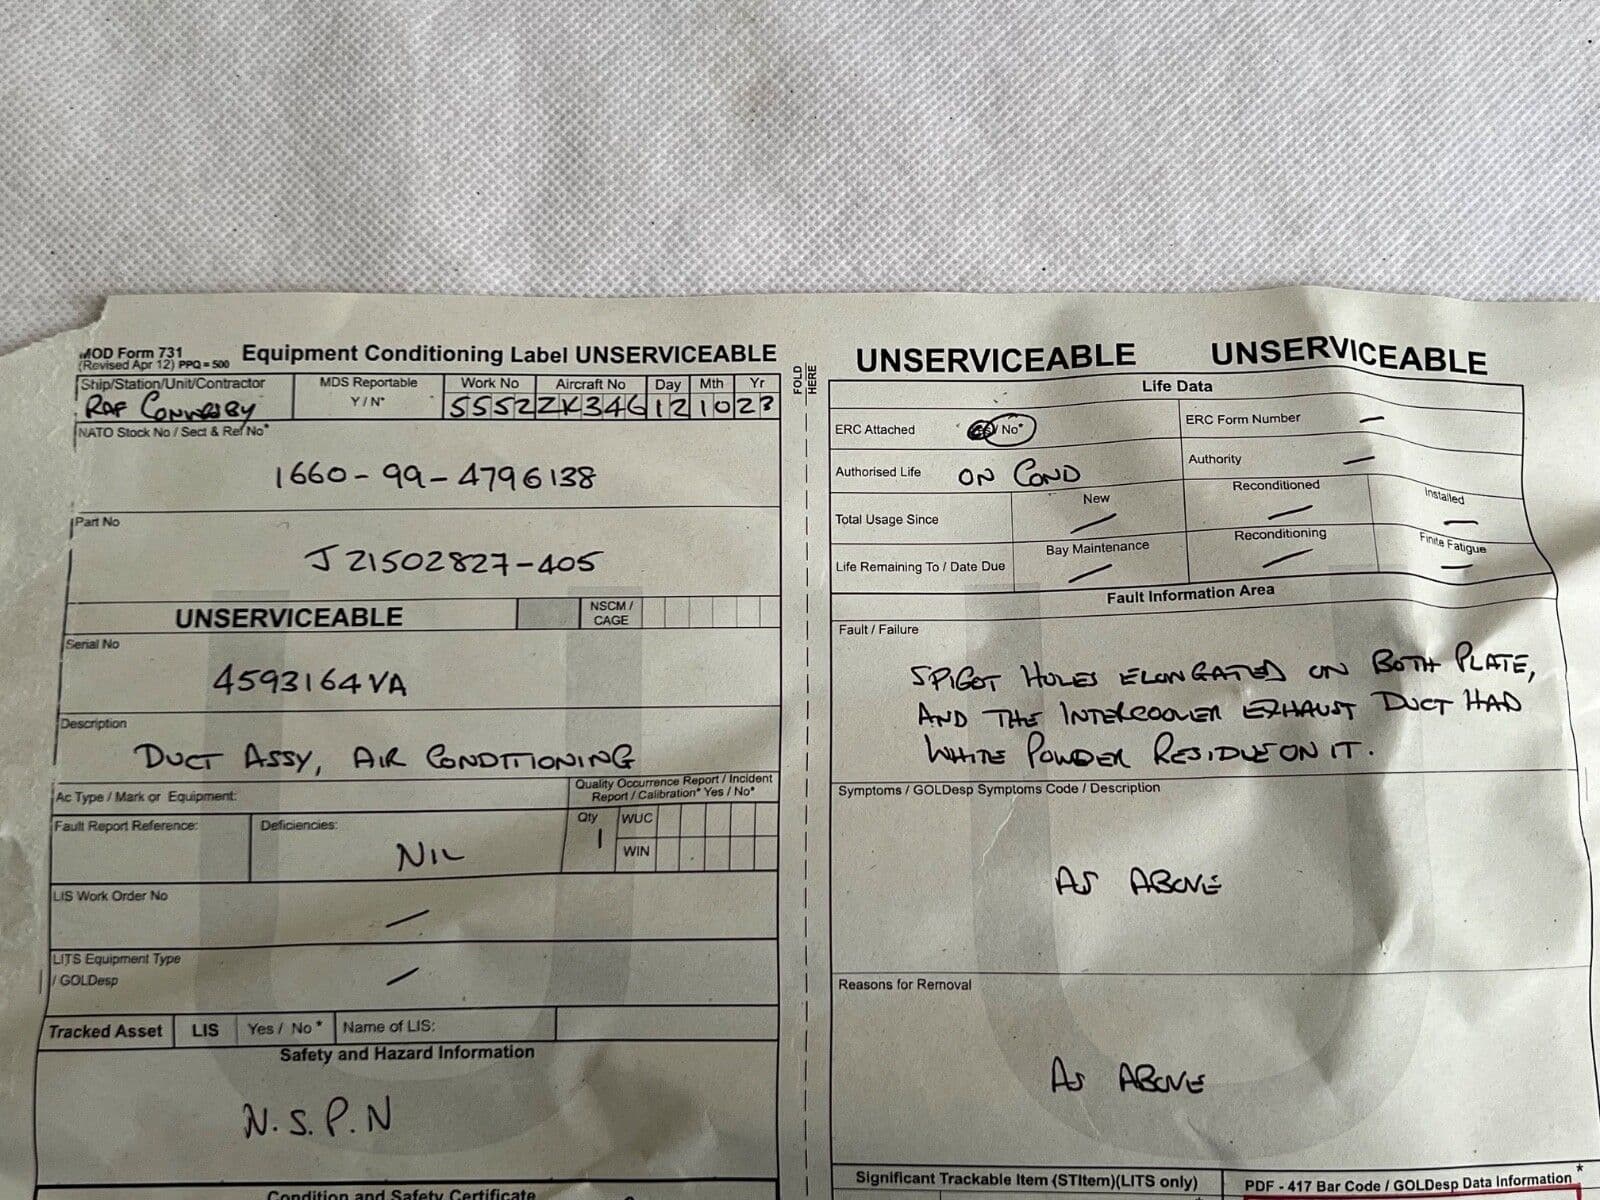 MOD Form 731
(Revised Apr 12) PPQ = 500
Equipment Conditioning Label UNSERVICEABLE
Ship/Station/Unit/Contractor
RAF CONINGSBY
MDS Reportable
Y / N*
Work No
5552
Aircraft No
ZK346
Day
12
Mth
10
Yr
23
NATO Stock No / Sect & Ref No*
1660-99-4796138
Part No
J21502827-405
UNSERVICEABLE
NSCM /
CAGE
Serial No
4593164VA
Description
DUCT ASSY, AIR CONDITIONING
Ac Type / Mark or Equipment:
Quality Occurrence Report / Incident
Report / Calibration* Yes / No*
Fault Report Reference:
Deficiencies:
NIL
Qty
1
WUC
WIN
LIS Work Order No
—
LITS Equipment Type
/ GOLDesp
—
Tracked Asset
LIS
Yes / No *
Name of LIS:
Safety and Hazard Information
N.S.P.N
Condition and Safety Certificate
FOLD
HERE
UNSERVICEABLE UNSERVICEABLE
Life Data
ERC Attached
/ No*
ERC Form Number
—
Authorised Life
ON COND
Authority
—
Total Usage Since
New
—
Reconditioned
—
Installed
—
Life Remaining To / Date Due
Bay Maintenance
—
Reconditioning
—
Finite Fatigue
—
Fault Information Area
Fault / Failure
SPIGOT HOLES ELONGATED ON BOTH PLATE,
AND THE INTERCOOLER EXHAUST DUCT HAD
WHITE POWDER RESIDUE ON IT.
Symptoms / GOLDesp Symptoms Code / Description
AS ABOVE
Reasons for Removal
AS ABOVE
Significant Trackable Item (STItem)(LITS only)
PDF - 417 Bar Code / GOLDesp Data Information *